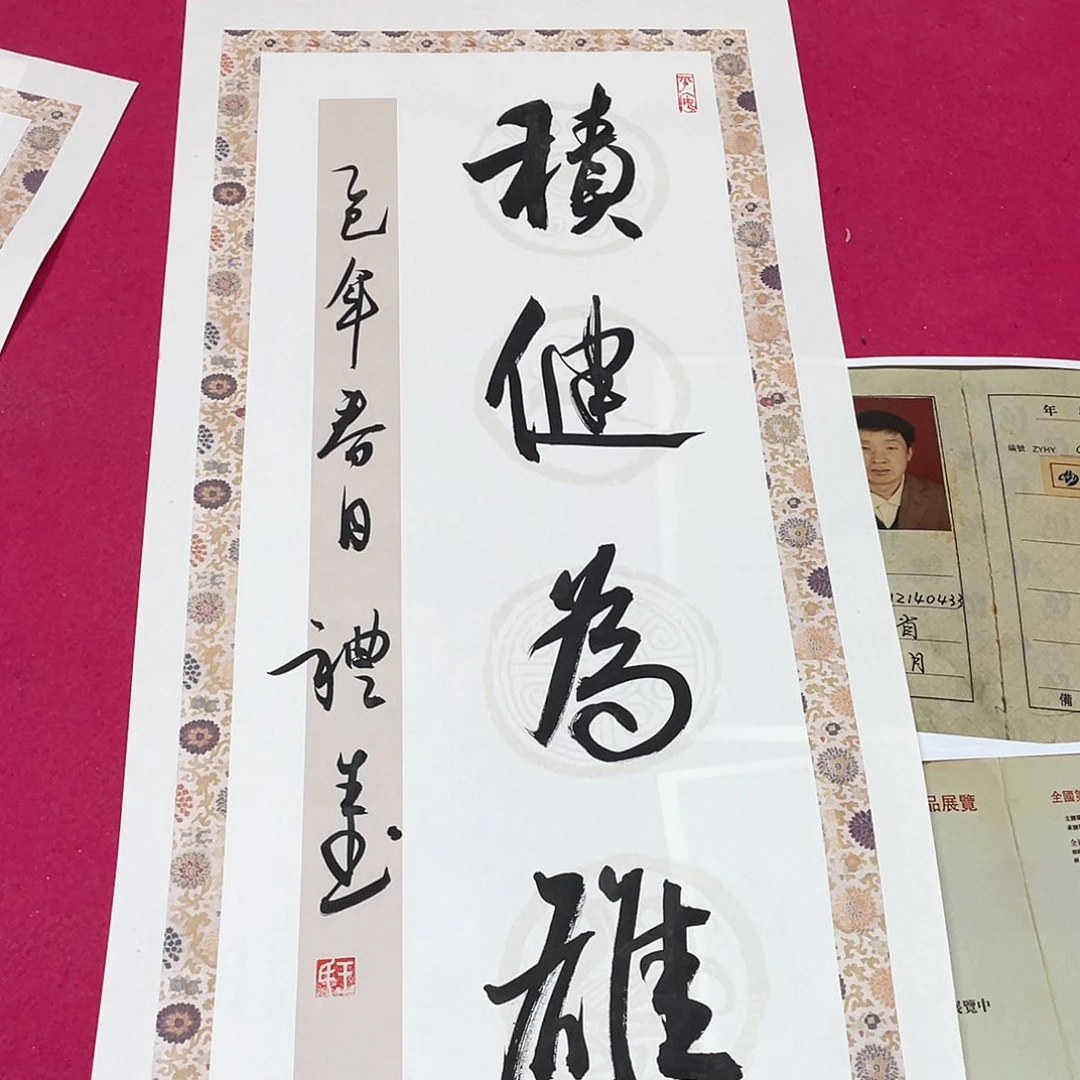 積健為雄
乙巳年春日禮
年
編號 ZYHY
12140433
省
月
備
品展覽
全國
展覽中